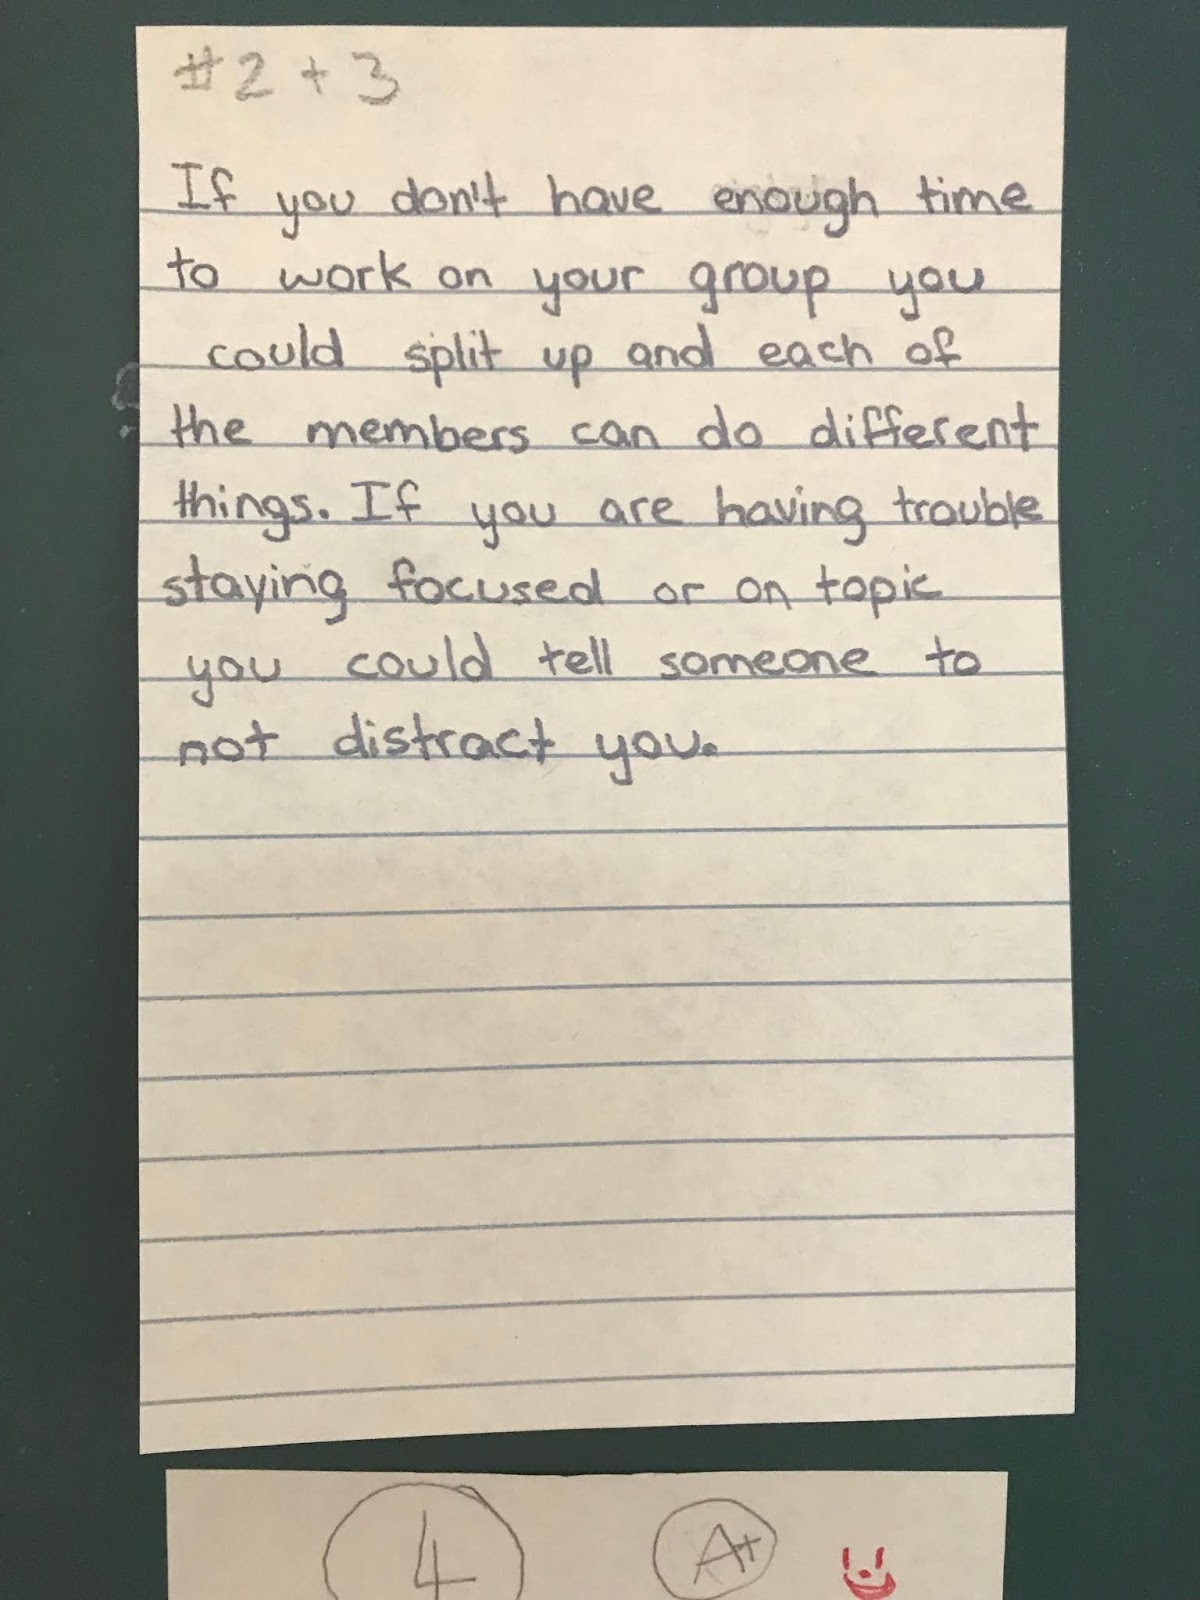 #2 + 3
If you don't have enough time
to work on your group you
could split up and each of
the members can do different
things. If you are having trouble
staying focused or on topic
you could tell someone to
not distract you.
4 A+